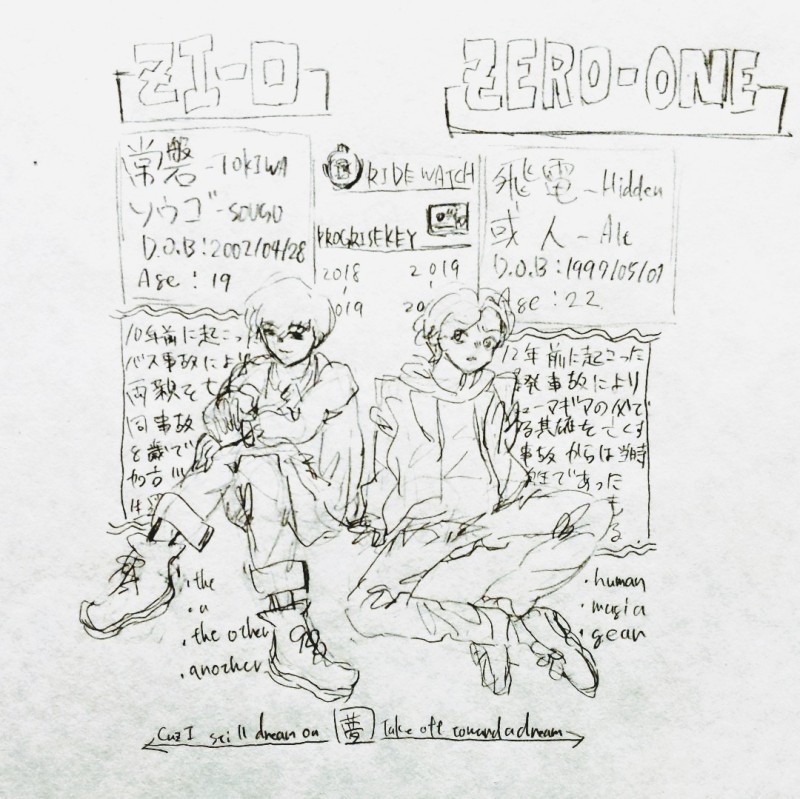 ZI-O
ZERO-ONE
常磐-TOKIWA
ソウゴ-SOUGO
D.O.B:2002/04/28
Age : 19
RIDEWATCH
PROGRISEKEY
2018 2019
飛電-Hidden
或人-Alt
D.O.B:1997/05/01
Age : 22
10年前に起こっ
バス事故により
両親を
同事故
8歳で
12年前に起こった
発事故により
ューマギアの父で
る其雄を亡くす
事故からは当時
であった
も
る.
・the
・a
・the other
・another
・human
・magia
・gear
Cuz I still dream on 夢 Take off toward a dream